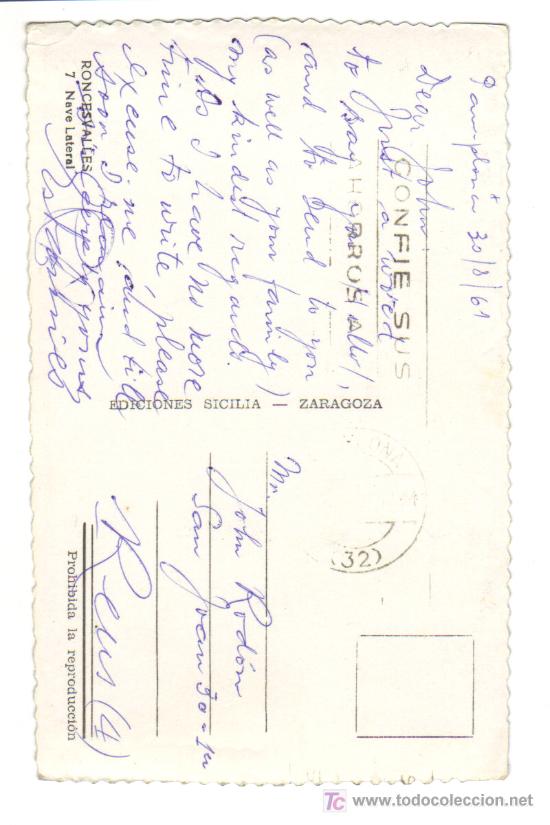 Pamplona 30/8/61
Dear John:
Just a word
to say you "Hallo!",
and to send to you
(as well as your family)
my kindest regards.
As I have no more
time to write, please
excuse me, and till
soon I remain
yours
CONFIE SUS
AHORROS A
RONCESVALLES
7 Nave Lateral
EDICIONES SICILIA — ZARAGOZA
(32)
Mr.
John Rodón
San Joan 30-1º
Reus (4)
Prohibida la reproducción
TC
www.todocoleccion.net